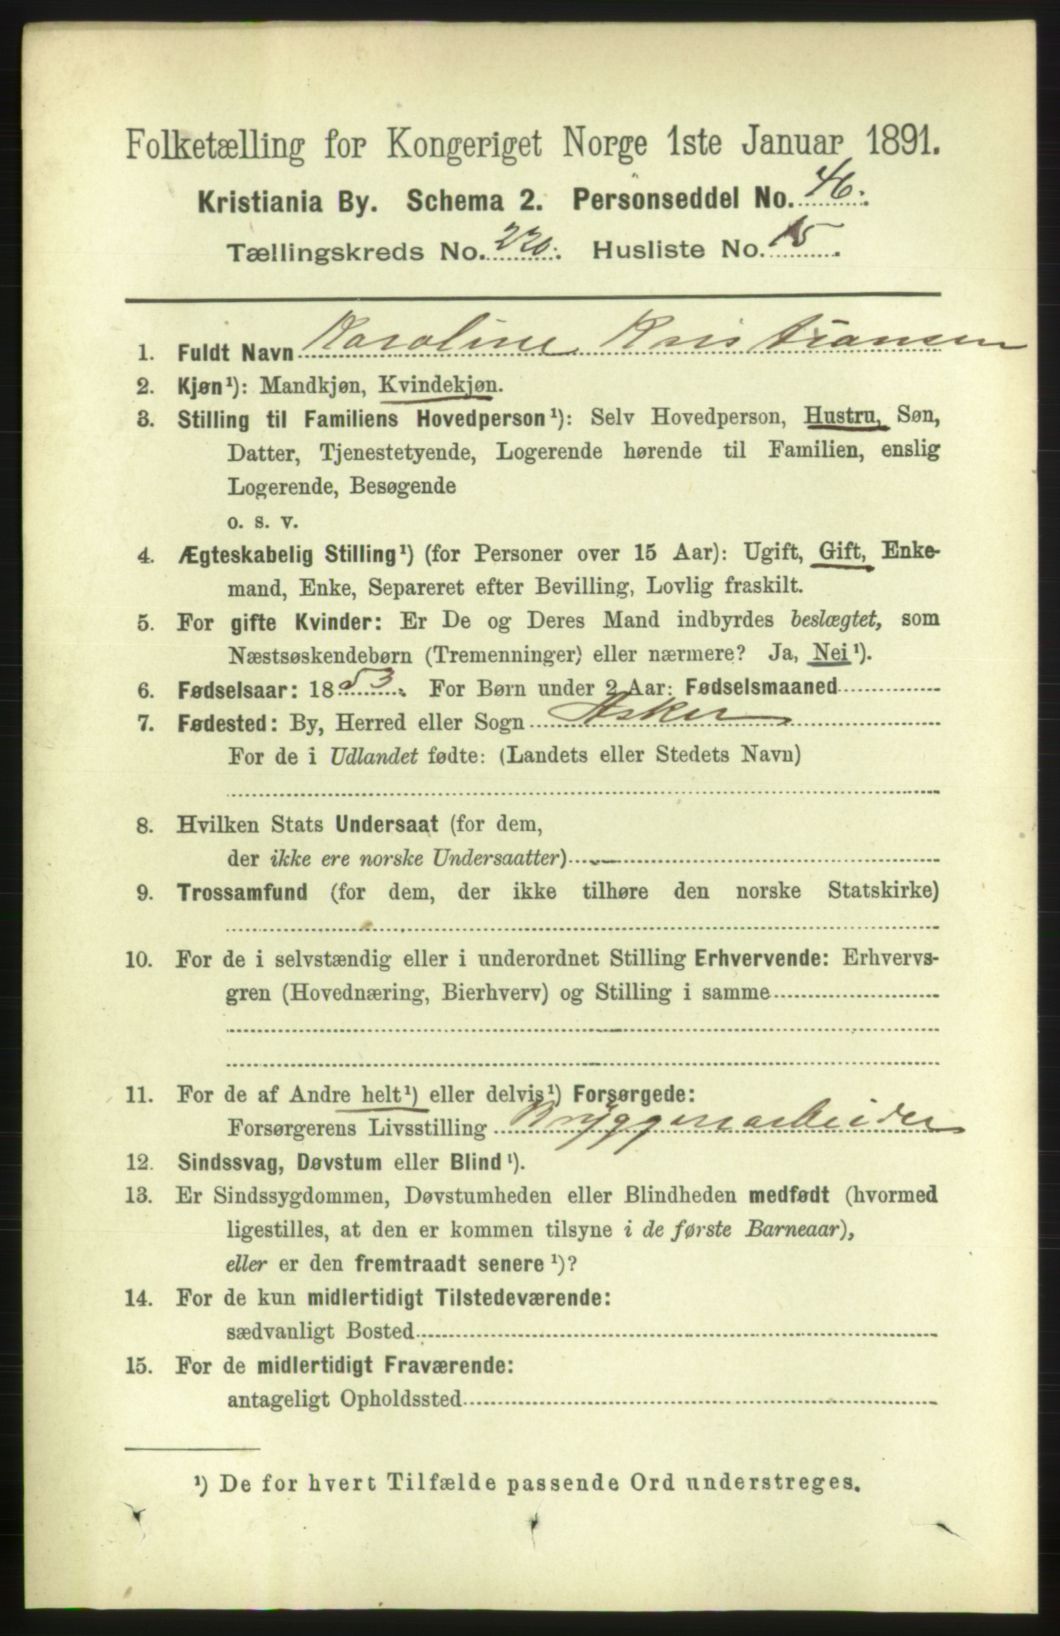 Folketælling for Kongeriget Norge 1ste Januar 1891.
Kristiania By. Schema 2. Personseddel No. 46.
Tællingskreds No. 220. Husliste No. 15.
1. Fuldt Navn Karoline Kristiansen
2. Kjøn¹): Mandkjøn, Kvindekjøn.
3. Stilling til Familiens Hovedperson¹): Selv Hovedperson, Hustru, Søn,
Datter, Tjenestetyende, Logerende hørende til Familien, enslig
Logerende, Besøgende
o. s. v.
4. Ægteskabelig Stilling¹) (for Personer over 15 Aar): Ugift, Gift, Enke-
mand, Enke, Separeret efter Bevilling, Lovlig fraskilt.
5. For gifte Kvinder: Er De og Deres Mand indbyrdes beslægtet, som
Næstsøskendebørn (Tremenninger) eller nærmere? Ja, Nei¹).
6. Fødselsaar: 1853. For Børn under 2 Aar: Fødselsmaaned
7. Fødested: By, Herred eller Sogn Asker
For de i Udlandet fødte: (Landets eller Stedets Navn)
8. Hvilken Stats Undersaat (for dem,
der ikke ere norske Undersaatter)
9. Trossamfund (for dem, der ikke tilhøre den norske Statskirke)
10. For de i selvstændig eller i underordnet Stilling Erhvervende: Erhvervs-
gren (Hovednæring, Bierhverv) og Stilling i samme
11. For de af Andre helt¹) eller delvis¹) Forsørgede:
Forsørgerens Livsstilling Bryggeriarbeider
12. Sindssvag, Døvstum eller Blind¹).
13. Er Sindssygdommen, Døvstumheden eller Blindheden medfødt (hvormed
ligestilles, at den er kommen tilsyne i de første Barneaar),
eller er den fremtraadt senere¹)?
14. For de kun midlertidigt Tilstedeværende:
sædvanligt Bosted
15. For de midlertidigt Fraværende:
antageligt Opholdssted
¹) De for hvert Tilfælde passende Ord understreges.